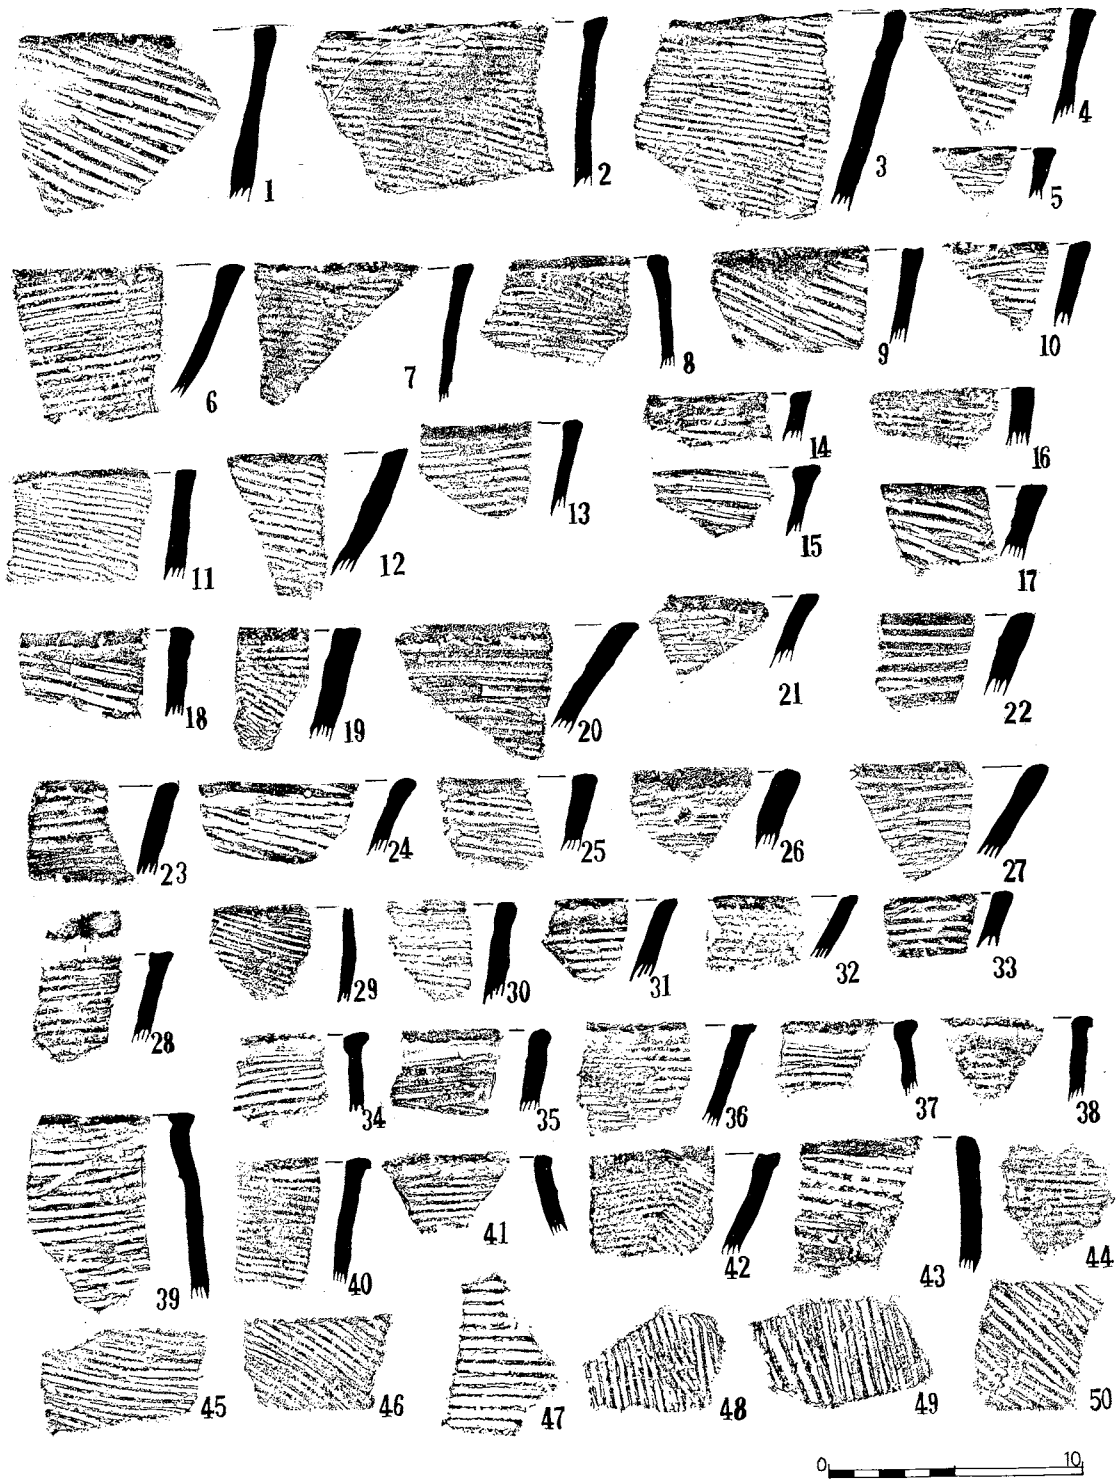 1 2 3 4
5
6 7 8 9 10
11 12 13 14 16
15 17
18 19 20 21 22
23 24 25 26 27
28 29 30 31 32 33
34 35 36 37 38
39 40 41 42 43 44
45 46 47 48 49 50
0 10